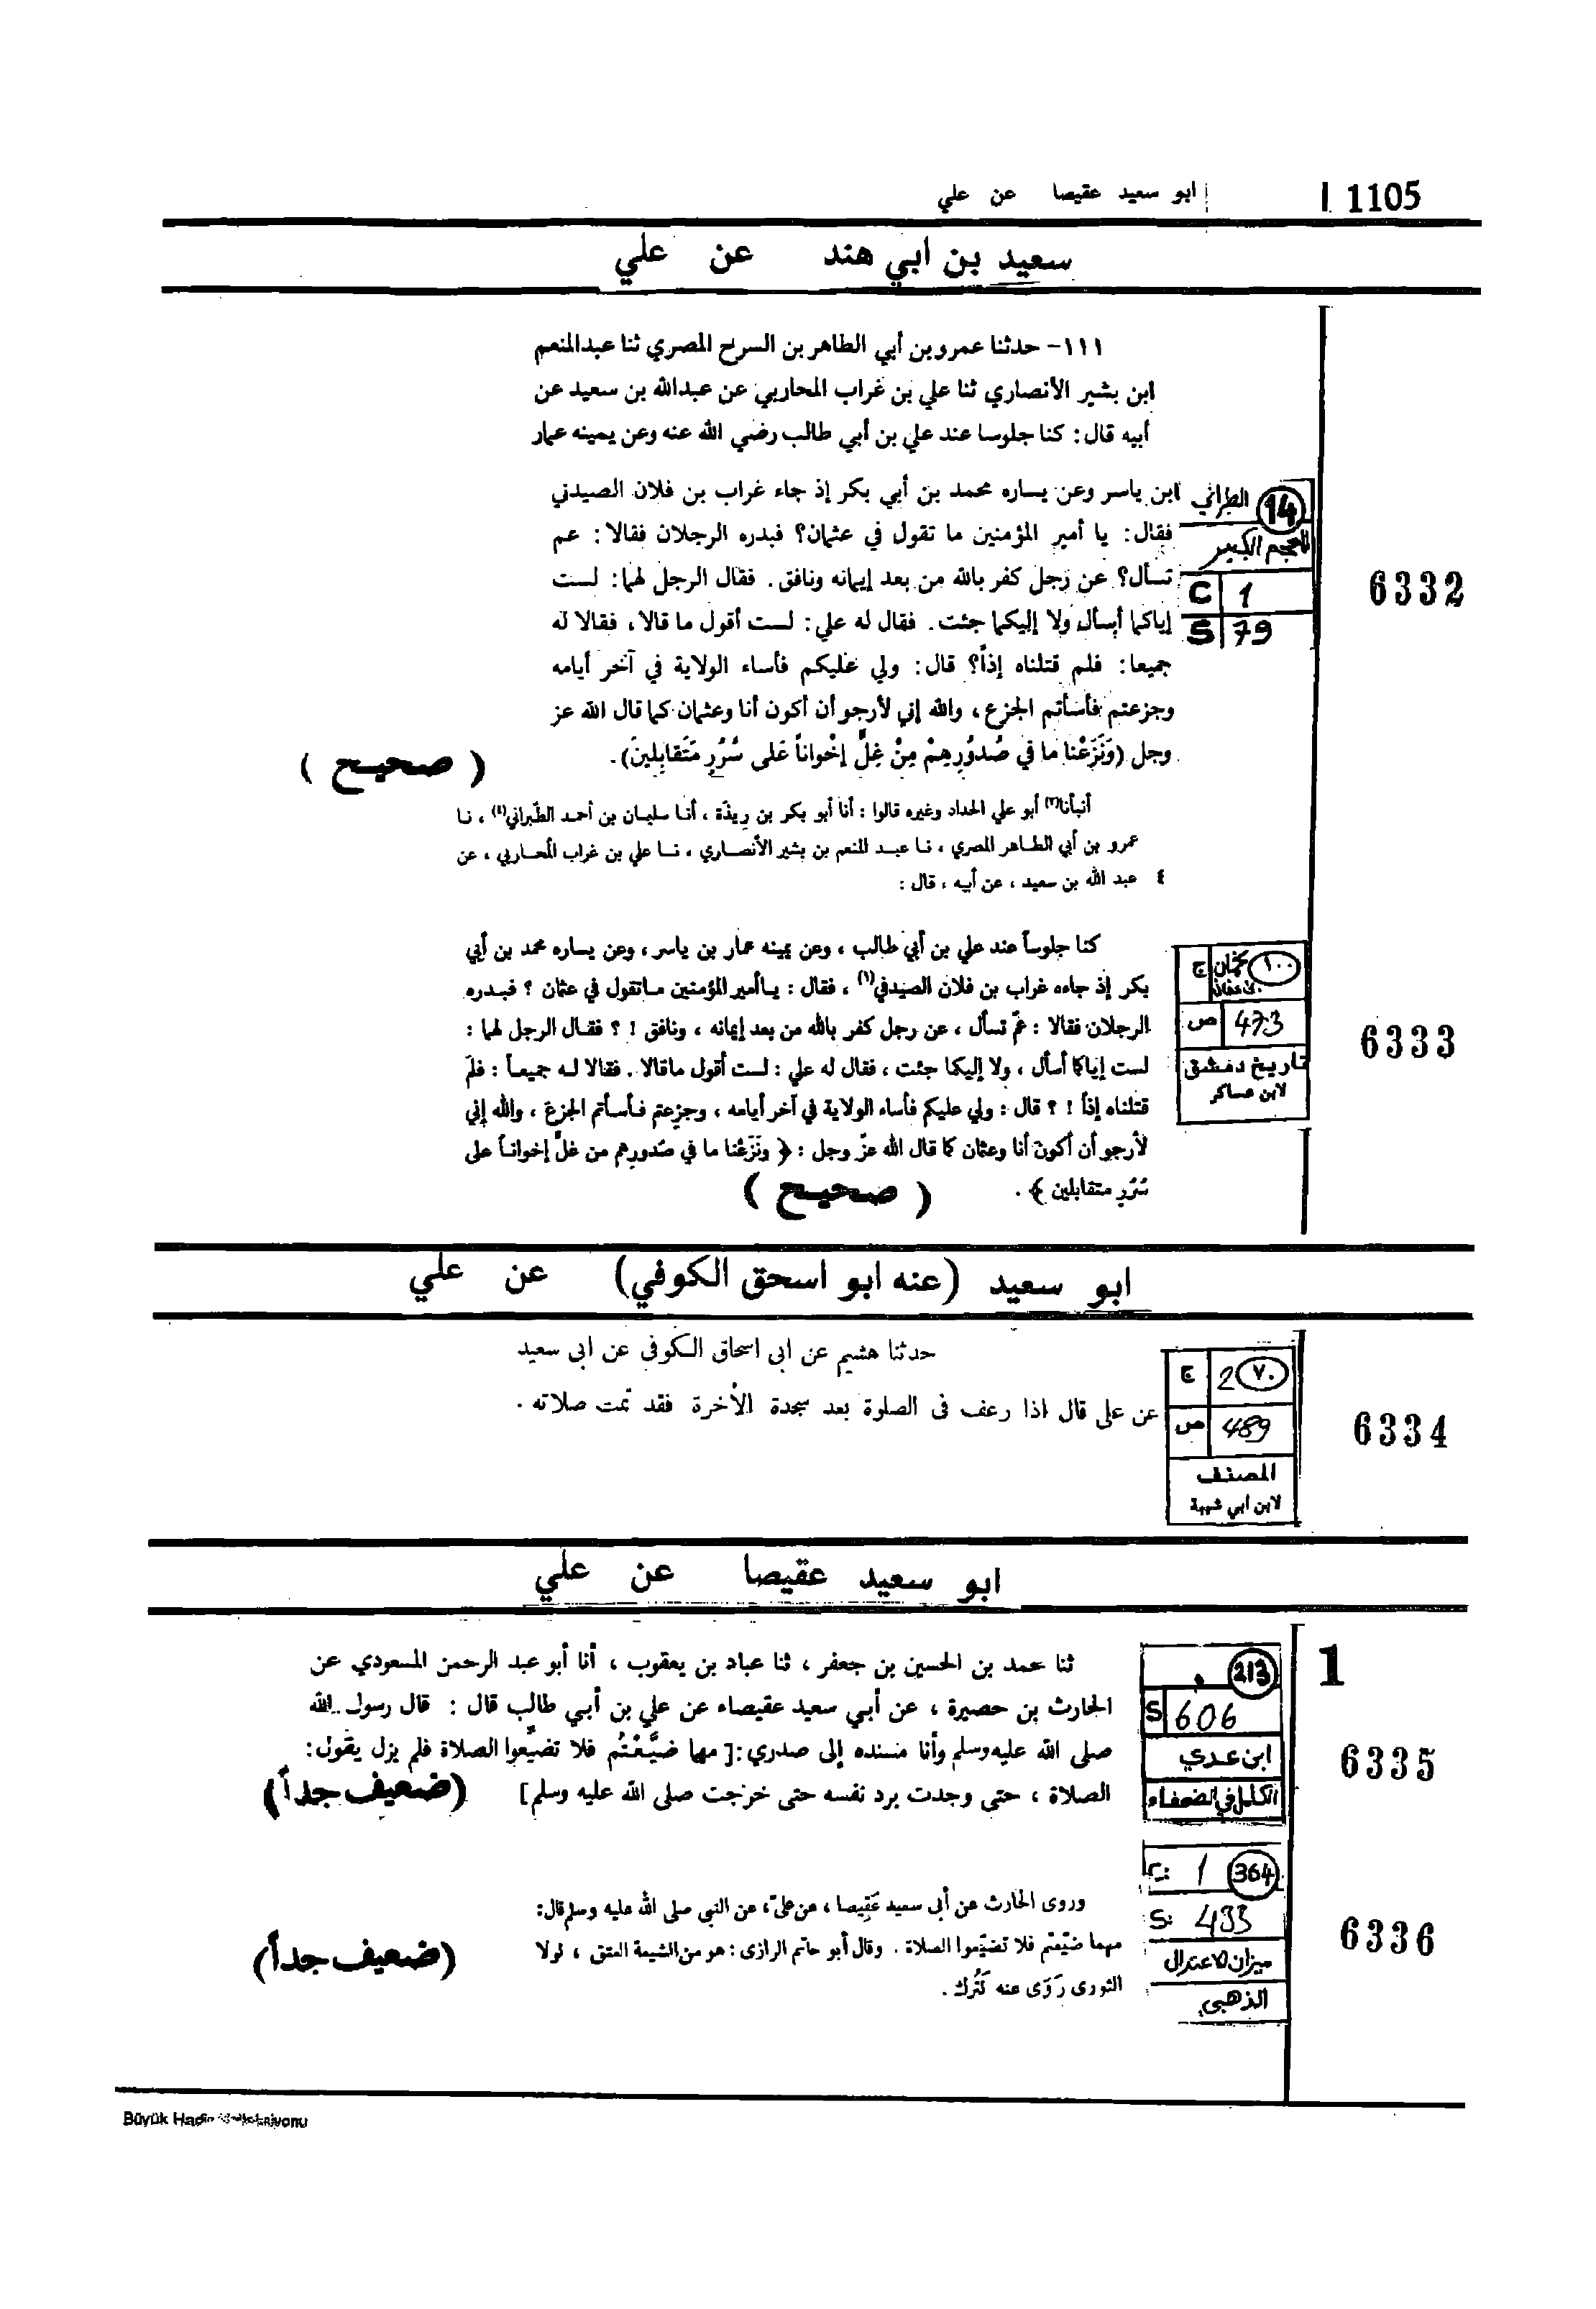 1105 ابو سعيد عقيصا عن علي
سعيد بن ابي هند عن علي
١١١- حدثنا عمرو بن أبي الطاهر بن السرح المصري ثنا عبدالمنعم
ابن بشير الأنصاري ثنا علي بن غراب المحاربي عن عبدالله بن سعيد عن
أبيه قال: كنا جلوسا عند علي بن أبي طالب رضي الله عنه وعن يمينه عمار
ابن ياسر وعن يساره محمد بن أبي بكر إذ جاء غراب بن فلان الصيدني
فقال: يا أمير المؤمنين ما تقول في عثمان؟ فبدره الرجلان فقالا: عم
تسأل؟ عن رجل كفر بالله من بعد إيمانه ونافق. فقال الرجل لهما: لست
إياكما أسأل ولا إليكما جئت. فقال له علي: لست أقول ما قالا، فقالا له
جميعا: فلم قتلناه إذاً؟ قال: ولي عليكم فأساء الولاية في آخر أيامه
وجزعتم فأسأتم الجزع، والله إني لأرجو أن أكون أنا وعثمان كما قال الله عز
وجل (وَنَزَعْنا ما في صُدُورِهِمْ مِنْ غِلٍّ إخْواناً عَلى سُرُرٍ مَتَقابِلِينَ).
( صحيح )
14 الطبراني
المعجم الكبير
C 1
S 79
6332
أنبأنا(٣) أبو علي الحداد وغيره قالوا : أنا أبو بكر بن ريذة ، أنا سليمان بن أحمد الطّبراني(٤) ، نا
عمرو بن أبي الطاهر المصري ، نا عبد المنعم بن بشير الأنصاري ، نا علي بن غراب المحاربي ، عن
٤ عبد الله بن سعيد ، عن أبيه ، قال :
كنا جلوساً عند علي بن أبي طالب ، وعن يمينه عمار بن ياسر ، وعن يساره محمد بن أبي
بكر إذ جاءه غراب بن فلان الصيدفي(١) ، فقال : ياأمير المؤمنين ماتقول في عثمان ؟ فبدره
الرجلان فقالا : عمّ تسأل ، عن رجل كفر بالله من بعد إيمانه ، ونافق ! ؟ فقال الرجل لهما :
لست إياكما أسأل ، ولا إليكما جئت ، فقال له علي : لست أقول ماقالا . فقالا له جميعاً : فلم
قتلناه إذاً ! ؟ قال : ولي عليكم فأساء الولاية في آخر أيامه ، وجزعتم فأسأتم الجزع ، والله إني
لأرجو أن أكون أنا وعثمان كما قال الله عزّ وجل : ﴿ ونَزَعْنا ما في صُدورِهم من غلٍّ إخواناً على
سُرُرٍ متقابلين ﴾ .
( صحيح )
١٠٠ عثمان بن عفان ج
473 ص
تاريخ دمشق
لابن عساكر
6333
ابو سعيد (عنه ابو اسحق الكوفي) عن علي
حدثنا هشيم عن ابى اسحاق الكوفى عن ابى سعيد
عن على قال اذا رعف فى الصلوة بعد سجدة الأخرة فقد تمت صلاته .
٧٠ 2 ج
489 ص
المصنف
لابن ابي شيبة
6334
ابو سعيد عقيصا عن علي
1
ثنا محمد بن الحسين بن جعفر ، ثنا عباد بن يعقوب ، أنا أبو عبد الرحمن المسعودي عن
الحارث بن حصيرة ، عن أبي سعيد عقيصاء عن علي بن أبي طالب قال : قال رسول الله
صلى الله عليه وسلم وأنا مسنده إلى صدري :[ مهما ضَيَّعْتُم فلا تضيعوا الصلاة فلم يزل يقول:
الصلاة ، حتى وجدت برد نفسه حتى خرجت صلى الله عليه وسلم]
(ضعيف جداً)
213
S 606
ابن عدي
الكامل في الضعفاء
6335
وروى الحارث عن أبى سعيد عَقِيصا ، عن علىّ، عن النبى صلى الله عليه وسلم قال:
مهما ضيّعتم فلا تضيّعوا الصلاة . وقال أبو حاتم الرازى : هو من الشيعة العتق ، لولا
الثورى رَوَى عنه لَتُرِك .
(ضعيف جداً)
364 C: 1
S: 433
ميزان الاعتدال
الذهبي
6336
Büyük Hadis